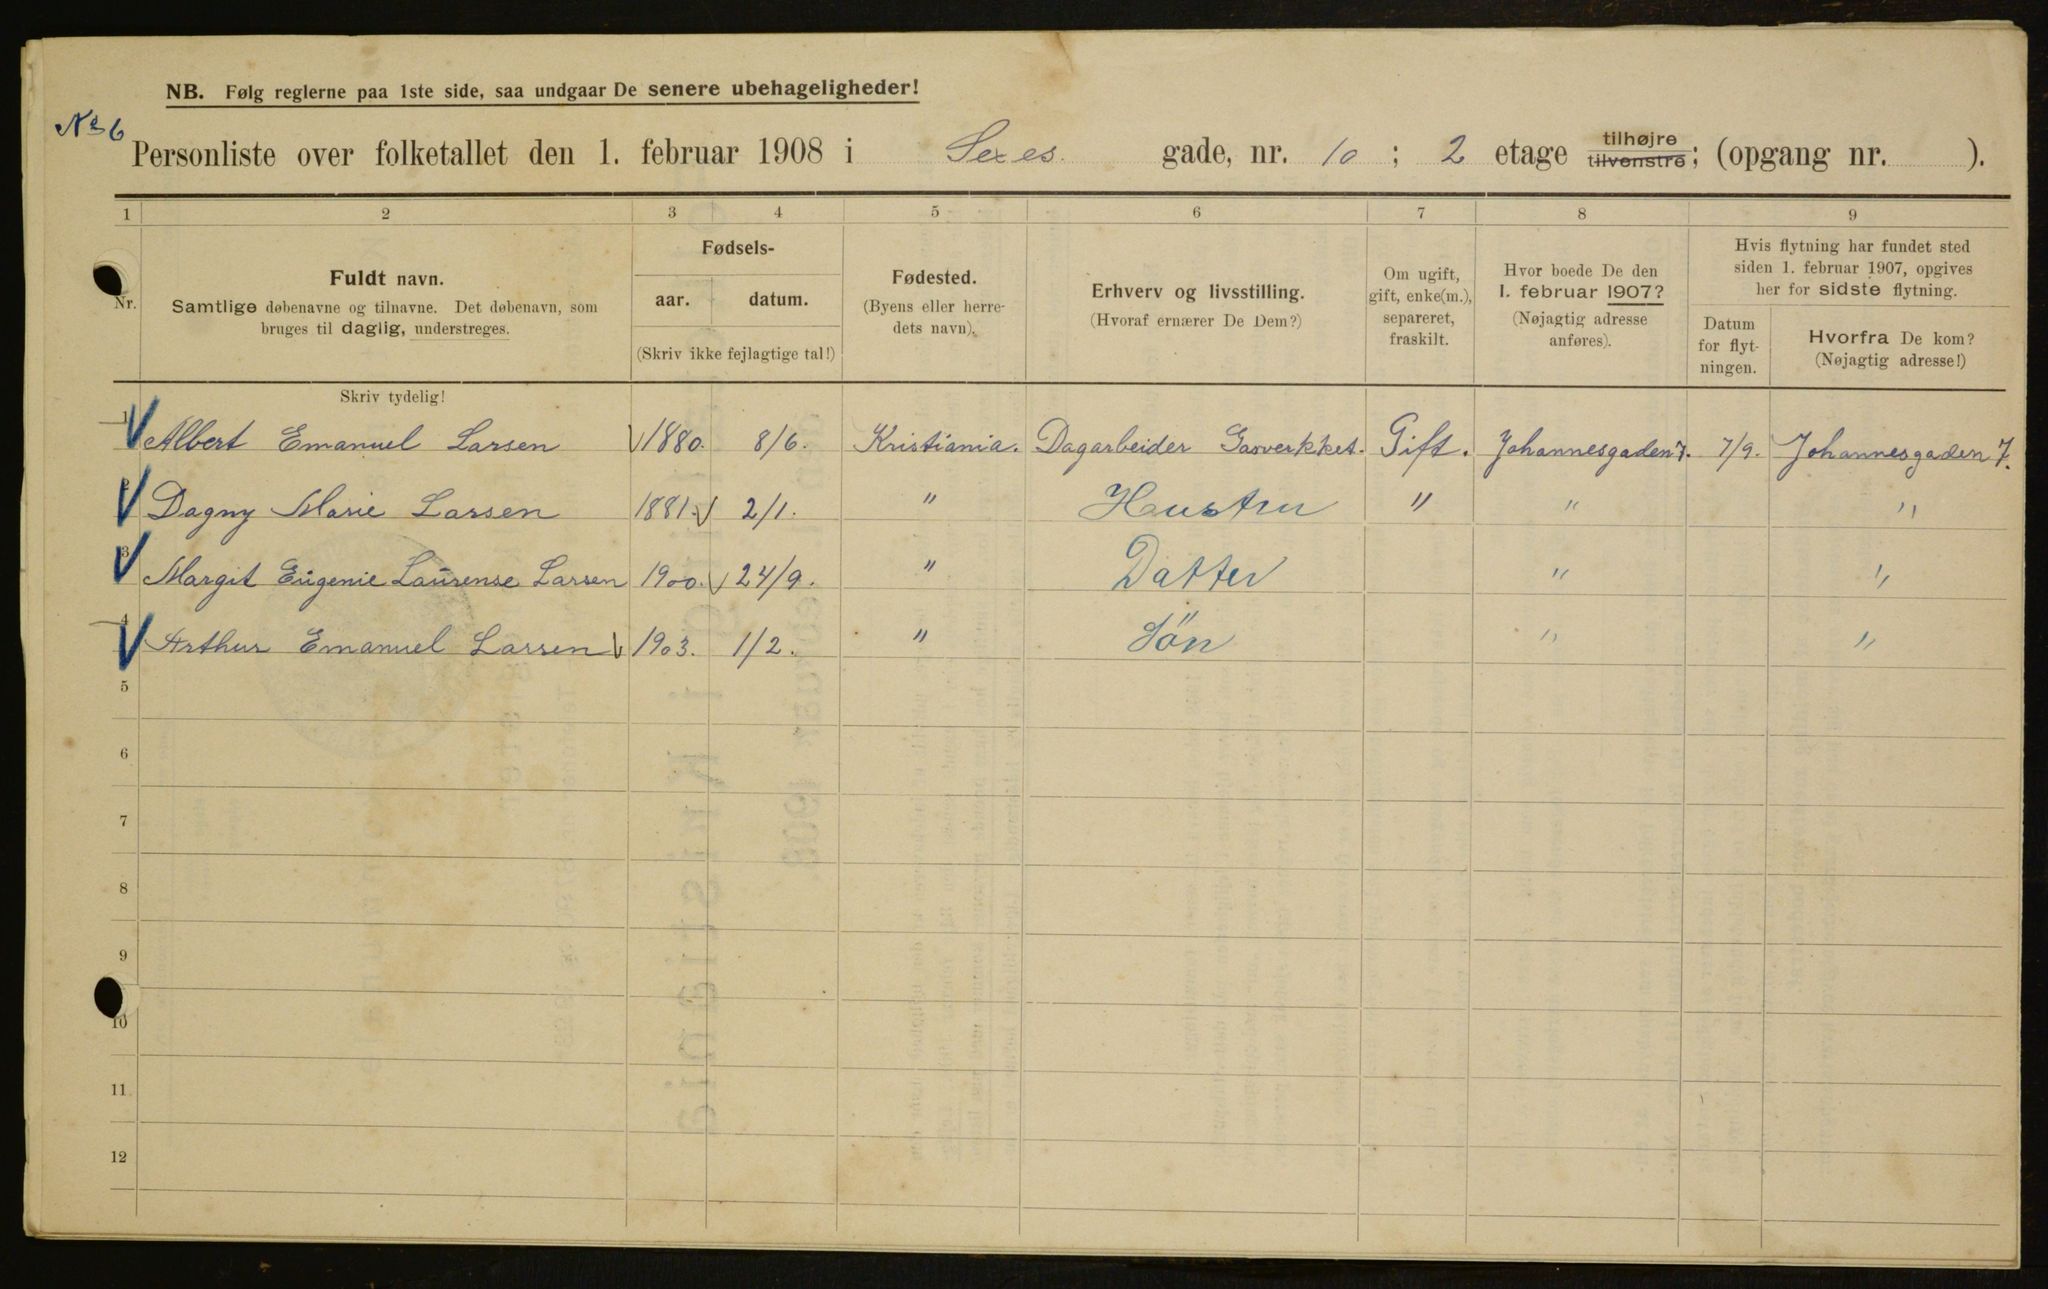 NB. Følg reglerne paa 1ste side, saa undgaar De senere ubehageligheder!
No 6
Personliste over folketallet den 1. februar 1908 i Sexes gade, nr. 10 ; 2 etage tilhøjre tilvenstre; (opgang nr. ).
1 2 3 4 5 6 7 8 9
Nr.
Fuldt navn.
Samtlige døbenavne og tilnavne. Det døbenavn, som
bruges til daglig, understreges.
Fødsels-
aar. datum.
(Skriv ikke fejlagtige tal!)
Fødested.
(Byens eller herre-
dets navn).
Erhverv og livsstilling.
(Hvoraf ernærer De Dem?)
Om ugift,
gift, enke(m.),
separeret,
fraskilt.
Hvor boede De den
1. februar 1907?
(Nøjagtig adresse
anføres).
Hvis flytning har fundet sted
siden 1. februar 1907, opgives
her for sidste flytning.
Datum
for flyt-
ningen.
Hvorfra De kom?
(Nøjagtig adresse!)
Skriv tydelig!
1 Albert Emanuel Larsen 1880. 8/6. Kristiania. Dagarbeider Gasverkket. Gift. Johannesgaden 7. 7/9. Johannesgaden 7.
2 Dagny Marie Larsen 1881. 2/1. " Haustru " " "
3 Margit Eugenie Laurense Larsen 1900. 24/9. " Datter " "
4 Arthur Emanuel Larsen 1903. 1/2. " Sön " "
5
6
7
8
9
10
11
12